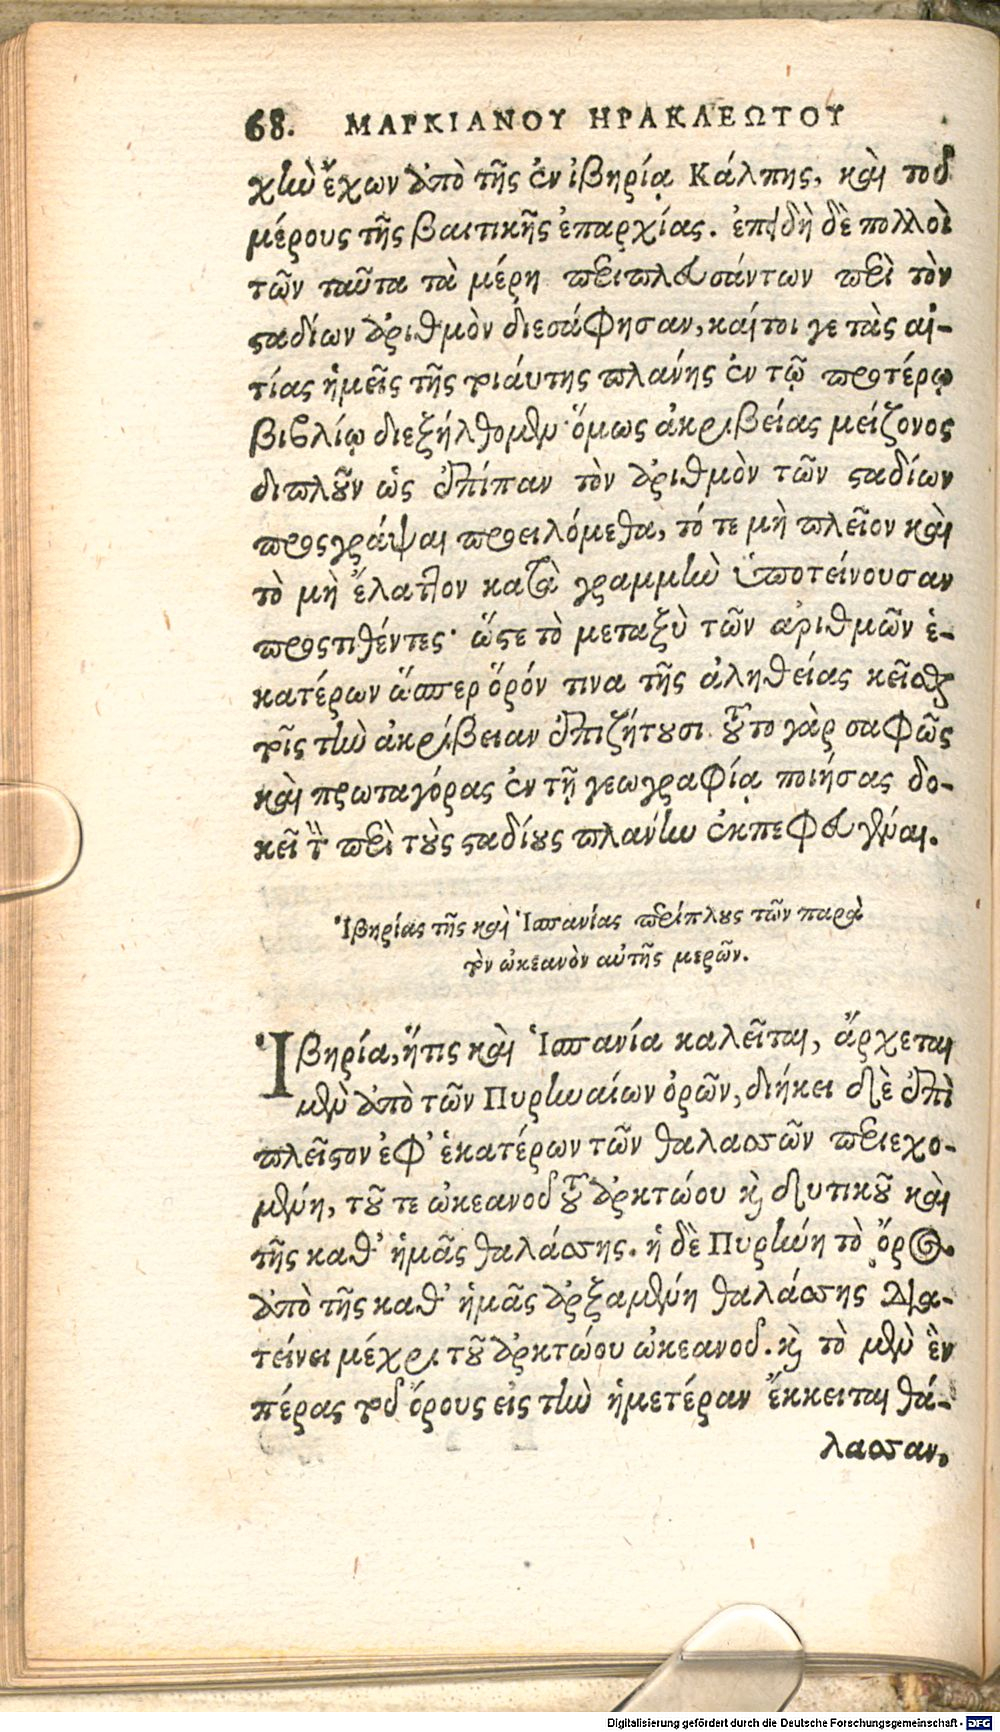 68. ΜΑΡΚΙΑΝΟΥ ΗΡΑΚΛΕΩΤΟΥ
χὴν ἔχων ἀπὸ τῆς ἐν ἰβηρίᾳ Κάλπης, καὶ τοῦ
μέρους τῆς βαιτικῆς ἐπαρχίας. ἐπειδὴ δὲ πολλοὶ
τῶν ταῦτα τὰ μέρη περιπλευσάντων περὶ τὸν
σταδίων ἀριθμὸν διεσάφησαν, καίτοι γε τὰς αἰ-
τίας ἡμεῖς τῆς τοιάυτης πλάνης ἐν τῷ προτέρῳ
βιβλίῳ διεξήλθομεν· ὅμως ἀκριβείας μείζονος
διπλοῦν ὡς ἐπίπαν τὸν ἀριθμὸν τῶν σταδίων
προςγράψαι προειλόμεθα, τό τε μὴ πλεῖον καὶ
τὸ μὴ ἔλαττον κατὰ γραμμὴν ὑποτείνουσαν
προςτιθέντες· ὥστε τὸ μεταξὺ τῶν ἀριθμῶν ἑ-
κατέρων ὥσπερ ὅρόν τινα τῆς ἀληθείας κεῖσθαι
τοῖς τὴν ἀκρίβειαν ἐπιζήτουσι. τοῦτο γὰρ σαφῶς
καὶ πρωταγόρας ἐν τῇ γεωγραφίᾳ ποιήσας δο-
κεῖ τὴν περὶ τοὺς σταδίους πλάνην ἐκπεφευγέναι.
Ἰβηρίας τῆς καὶ Ἱσπανίας περίπλους τῶν παρὰ
τὸν ὠκεανὸν αὐτῆς μερῶν.
Ἰβηρία, ἥτις καὶ Ἱσπανία καλεῖται, ἄρχεται
μὲν ἀπὸ τῶν Πυρηναίων ὀρῶν, διήκει δὲ ἐπὶ
πλεῖστον ἐφ' ἑκατέρων τῶν θαλασσῶν περιεχο-
μένη, τοῦ τε ὠκεανοῦ τοῦ ἀρκτώου καὶ δυτικοῦ καὶ
τῆς καθ' ἡμᾶς θαλάσσης. ἡ δὲ Πυρήνη τὸ ὄρος
ἀπὸ τῆς καθ' ἡμᾶς ἀρξαμένη θαλάσσης δια-
τείνει μέχρι τοῦ ἀρκτώου ὠκεανοῦ. καὶ τὸ μὲν ἓν
πέρας τοῦ ὄρους εἰς τὴν ἡμετέραν ἔκκειται θά-
λασσαν.
Digitalisierung gefördert durch die Deutsche Forschungsgemeinschaft - DFG